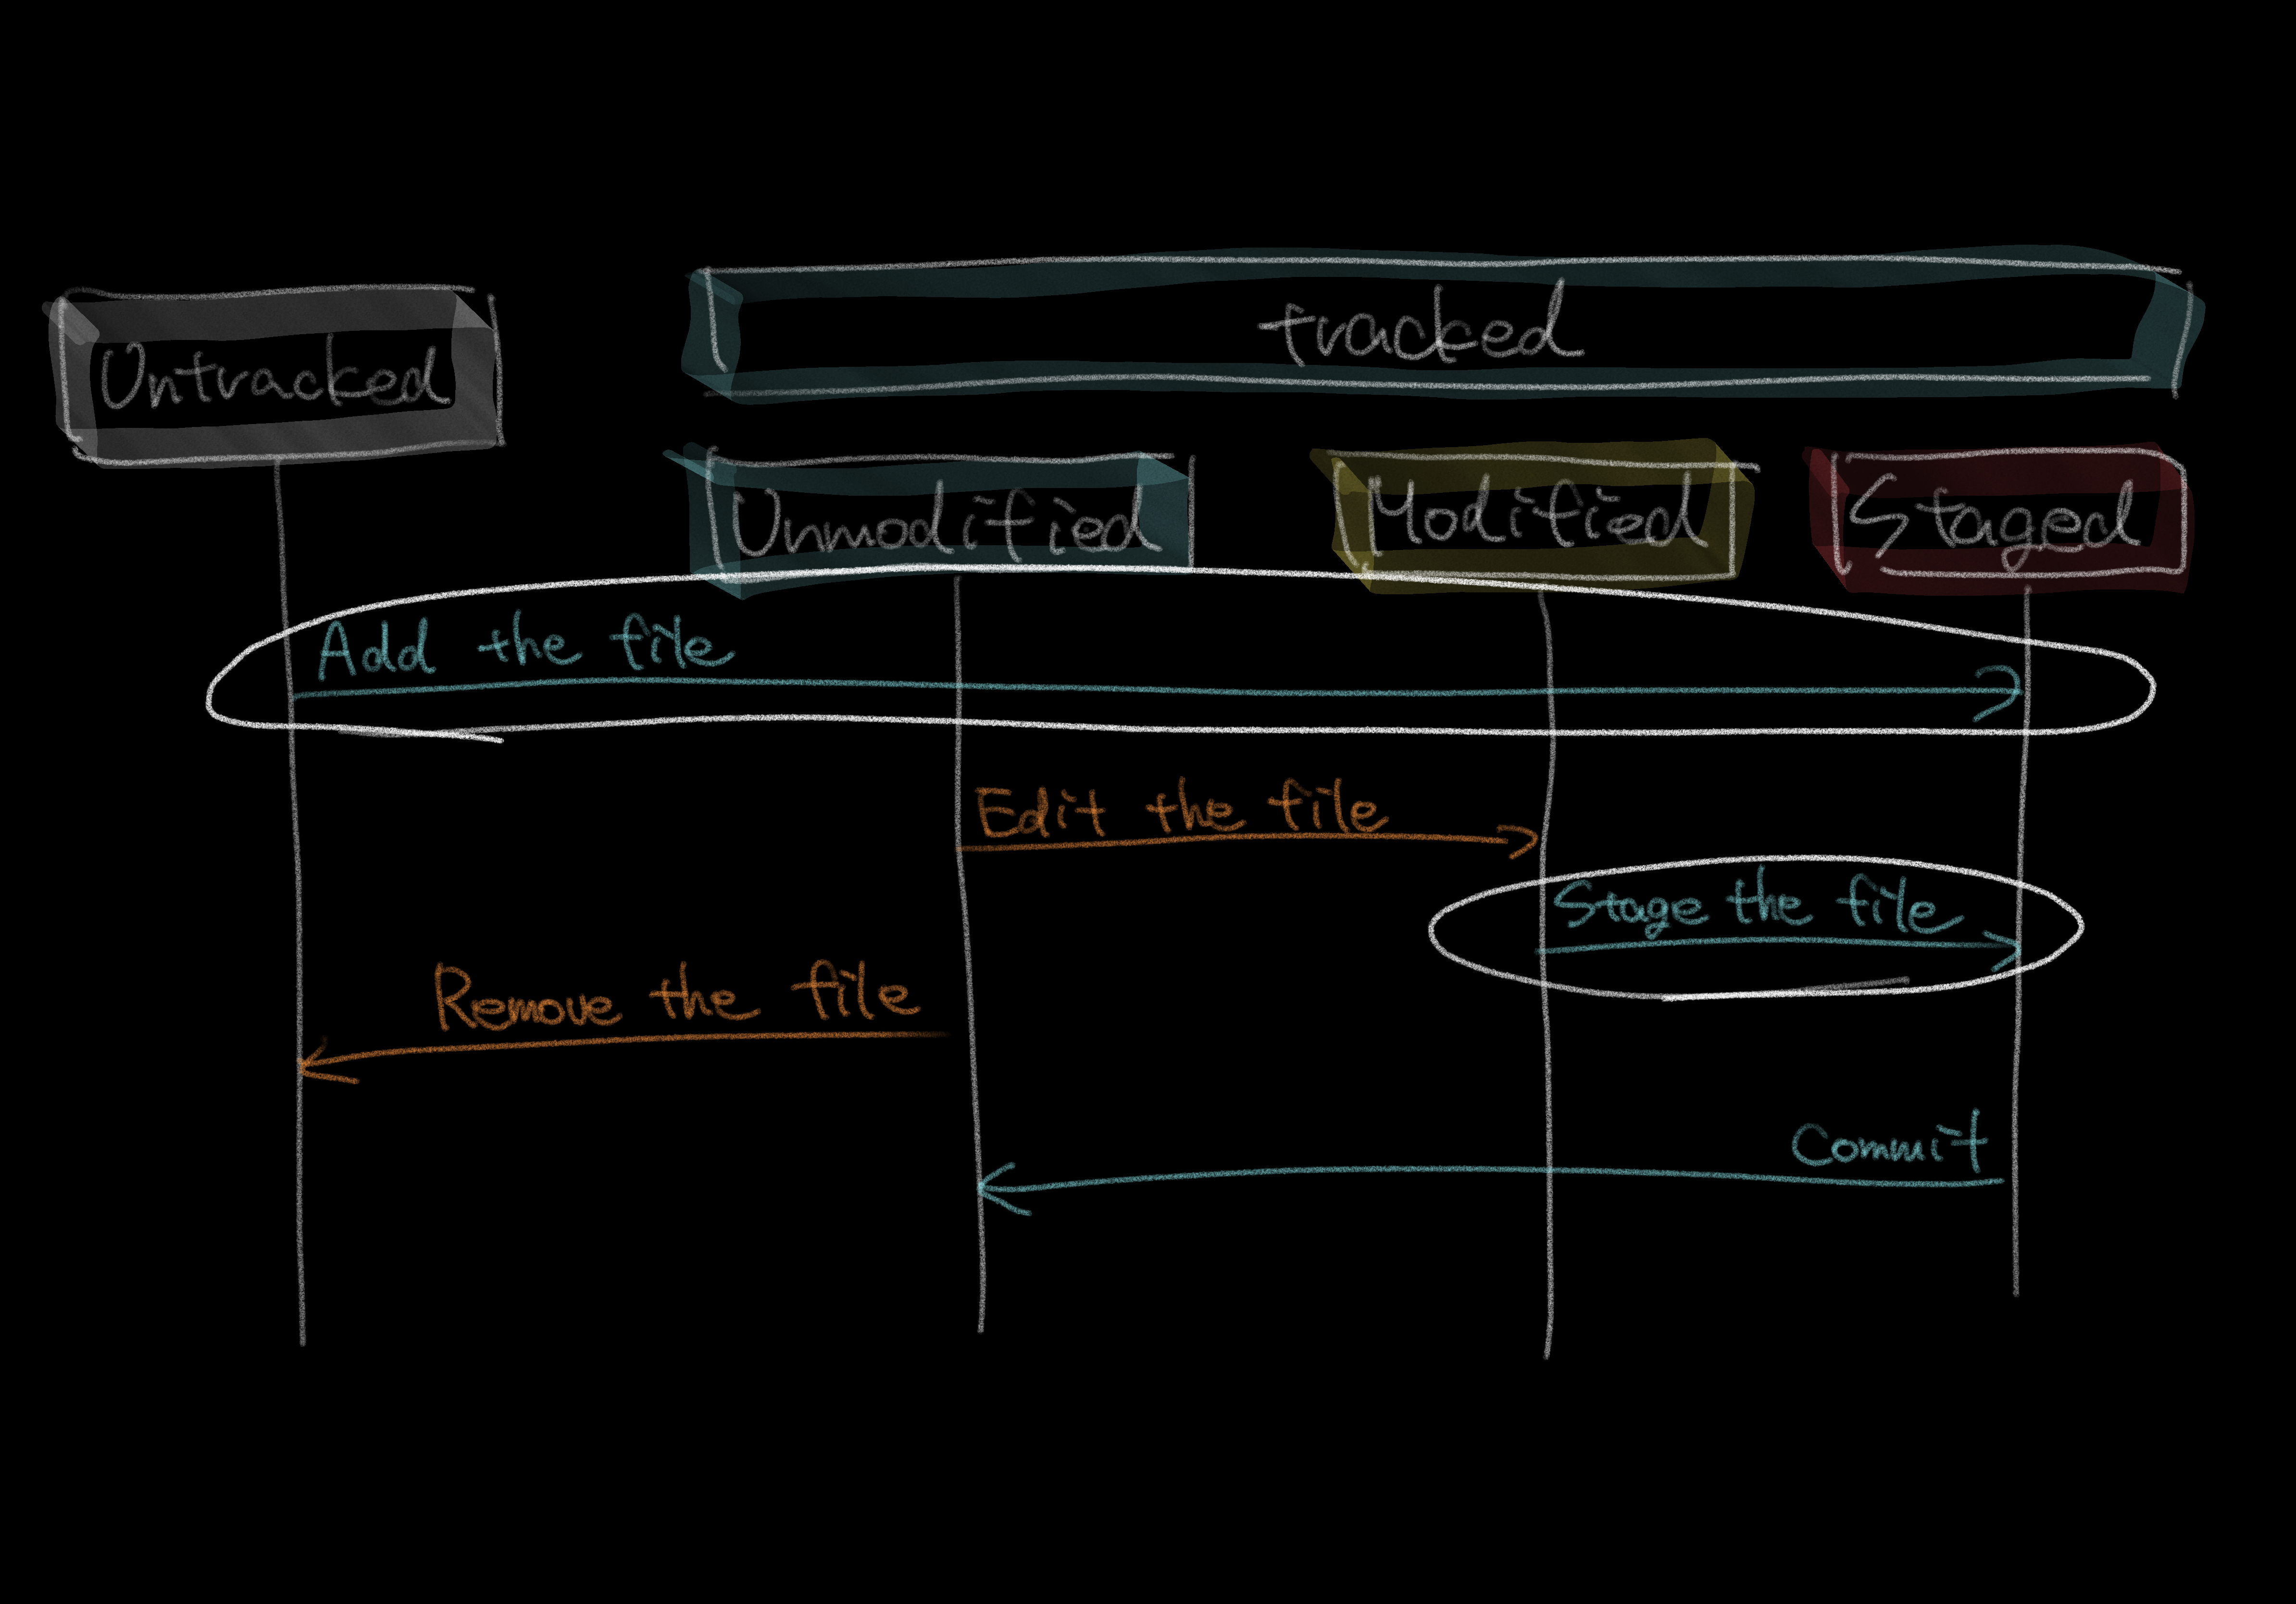 tracked
Untracked
Unmodified
Modified
Staged
Add the file
Edit the file
Stage the file
Remove the file
Commit